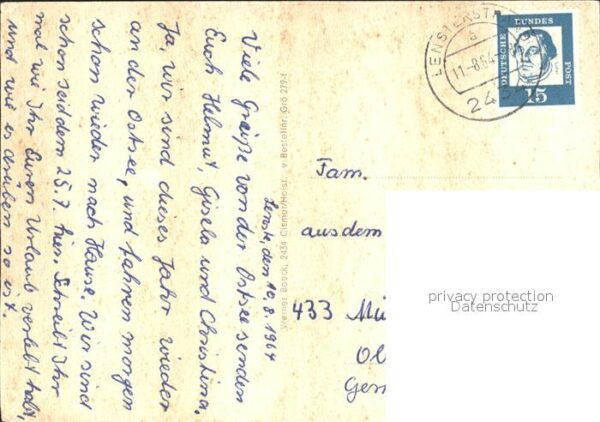 Lenste, den 10.8.1964
Viele Grüße von der Ostsee senden
Euch Helmut, Gisela und Christina.
Ja, wir sind dieses Jahr wieder
an der Ostsee, und fahren morgen
schon wieder nach Hause. Wir sind
schon seid dem 25.7. hier. Schreibt Ihr
mal wie Ihr Euren Urlaub verlebt habt,
und wie es drüben so ist.
Werner Boock, 2434 Cismar/Holst. v Bestellnr. Grö 279-1
LENSTERST
a
11.-8.64
243
DEUTSCHE BUNDES POST
15
Fam.
aus dem
433 Mü
Ol
Ger
privacy protection
Datenschutz